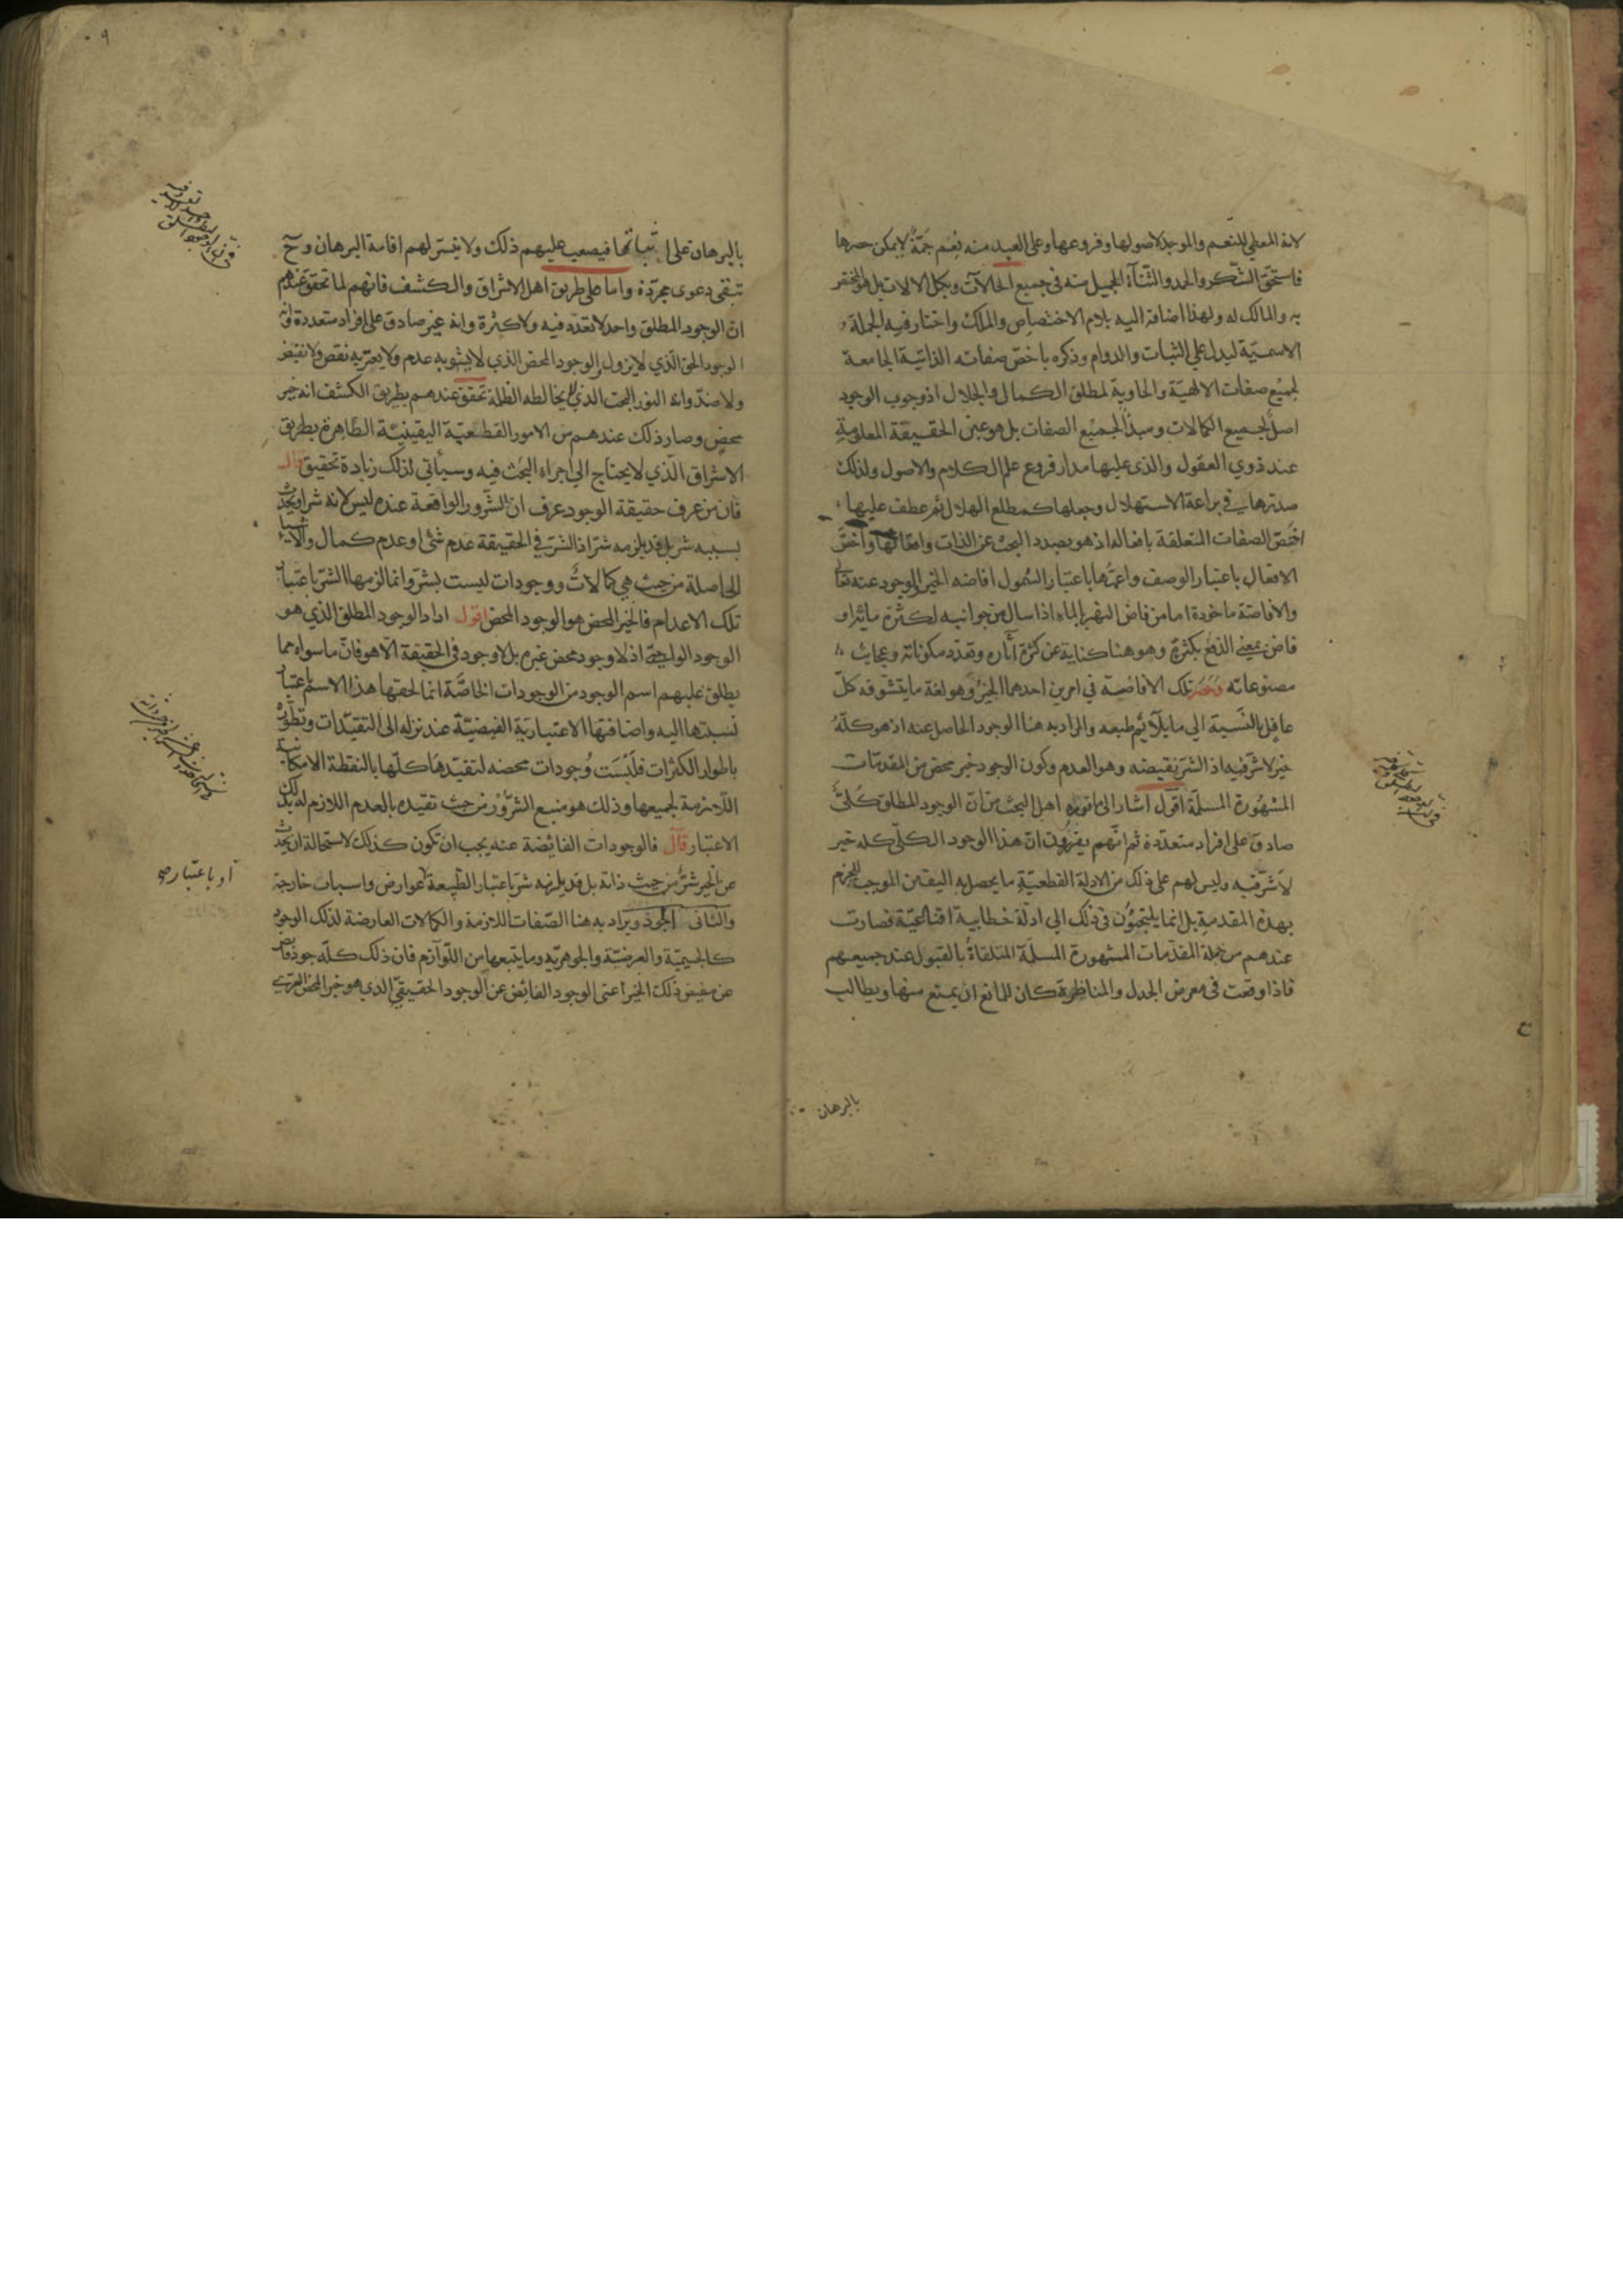 لانه المعطي للنعم والموجد لاصولها وفروعها وعلى العبد منه نِعَم جَمَّةٌ لايمكن حصرها
فاستحقّ الشّكر والحمد والثّنآء الجميل منه فى جميع الحالآت وبكل الالات بل هو المختص
به والمالك له ولهذا اضافة اليه بلام الاختصاص والملك واختار فيه الجملة
الاسميّة ليدل علي الثبات والدوام وذكره باخصّ صفاته الذاتيّة الجامعة
لجميع صفات الالهيّة والحاوية لمطلق الكمال والجلال اذ وجوب الوجود
اصل لجميع الكمالات ومبدأ لجميع الصفات بل هو عين الحقيقة المعلومة
عند ذوي العقول والذى عليها مدار فروع علم الكلام والاصول ولذلك
صدّرها في براعة الاستهلال وجعلها كمطلع الهلال ثم عطف عليها
اخصّ الصفات المتعلقة بافعاله اذ هو بصدد البحث عن الذات وافعالها واخصّ
الافعال باعتبار الوصف واعمّها باعتبار الشمول افاضه الخير والوجود عنه تعالى
والافاضة ماخوذة اما من فاض النهر بالماء اذا سال من جوانبه لكثرة مائه او
فاض بمعنى الدفع بكثرة وهو هنا كناية عن كثرة آثاره وتعدّد مكوناته وعجايب
مصنوعاته وحصَر تلك الافاضة في امرين احدهما الخير وهو لغة مايتشوقه كلّ
عاقل بالنّسبة الي مايلآئم طبعه والمراد به هنا الوجود الحاصل عنه اذ هو كلّهُ
خير لاشرّ فيه اذ الشرّ نقيضه وهو العدم وكون الوجود خير محض من المقدمات
المشهورة المسلّمة اقول اشار الى ماقرره اهل البحث من انّ الوجود المطلق كُلىّ
صادق على افراد متعدّدة ثم انّهم يقررون انّ هذا الوجود الكلّى كله خير
لاشرّ فيه وليس لهم على ذلك من الادلة القطعيّة مايحصل به اليقين الموجب للجزم
بهذه المقدمة بل انما يلتجئون فى ذلك الي ادلّة خطابية اقناعيّة فصارت
عندهم من جملة المقدّمات المشهورة المسلّمة المتلقاةُ بالقبول عند جميعهم
فاذا وقعت فى معرض الجدل والمناظرة كان للمانع ان يمنع منها ويطالب
بالبرهان
بالبرهان على اثباتها فيصعب عليهم ذلك ولا يتيسّر لهم اقامة البرهان وح
تبقى دعوى مجرّدة واما على طريق اهل الاشراق والكشف فانهم لما تحقق عندهم
انّ الوجود المطلق واحد لاتعدّد فيه ولاكثرة وانه غير صادق على افراد متعددة وانّه
الوجود الحق الّذي لايزول والوجود المحض الذي لايشوبه عدم ولايعتريه نقص ولانقيض
ولاضدّ وانه النور البحت الذي لايخالطه الظلمة تحقق عندهم بطريق الكشف انه خير
محض وصار ذلك عندهم من الامور القطعيّة اليقينيّة الظاهرة بطريق
الاشراق الّذي لايحتاج الي اجراء البحث فيه وسيأتي لذلك زيادة تحقيق قال
فان من عرف حقيقة الوجود عرف ان الشّرور الواقعة عنده ليس لانه شر او يحدث
بسببه شر بل قد يلزمه شرّ اذ الشرّ في الحقيقة عدم شئ او عدم كمال والاشياء
الحاصلة من حيث هي كمالاتٌ ووجودات ليست بشرّ وانما لزمها الشرّ باعتبار
تلك الاعدام فالخير المحض هو الوجود المحض اقول اراد الوجود المطلق الذي هو
الوجود الواجبىّ اذ لاوجود محض غيره بل لاوجود فى الحقيقة الّا هو فانّ ماسواه مما
يطلق عليهم اسم الوجود من الوجودات الخاصّة انما لحقها هذا الاسم باعتبار
نسبتها اليه واضافتها الاعتبارية الفيضيّة عند نزله الى التقيّدات وتطوّره
باطوار الكثرات فلَيْسَت وُجودات محضه لتقيّدها كلّها بالنقطة الامكانية
اللّازمة لجميعها وذلك هو منبع الشرّوْر من حيث تقيّده بالعدم اللازم له بذلك
الاعتبار قال فالوجودات الفائضة عنه يجب ان تكون كذلك لاستحالة ان يحدث
عن الخير شرّ من حيث ذاته بل قد يلزمه شر باعتبار الطّبيعة او باعتبار عوارض واسباب خارجة
والثانى الجود ويراد به هنا الصّفات اللازمة والكمالات العارضة لذلك الوجود
كالجسميّة والعرضيّة والجوهريّة ومايتبعها من اللّوآزم فان ذلك كلّه جود
عن مفيض ذلك الخير اعنى الوجود الفائض عن الوجود الحقيقيّ الذي هو خير المحض